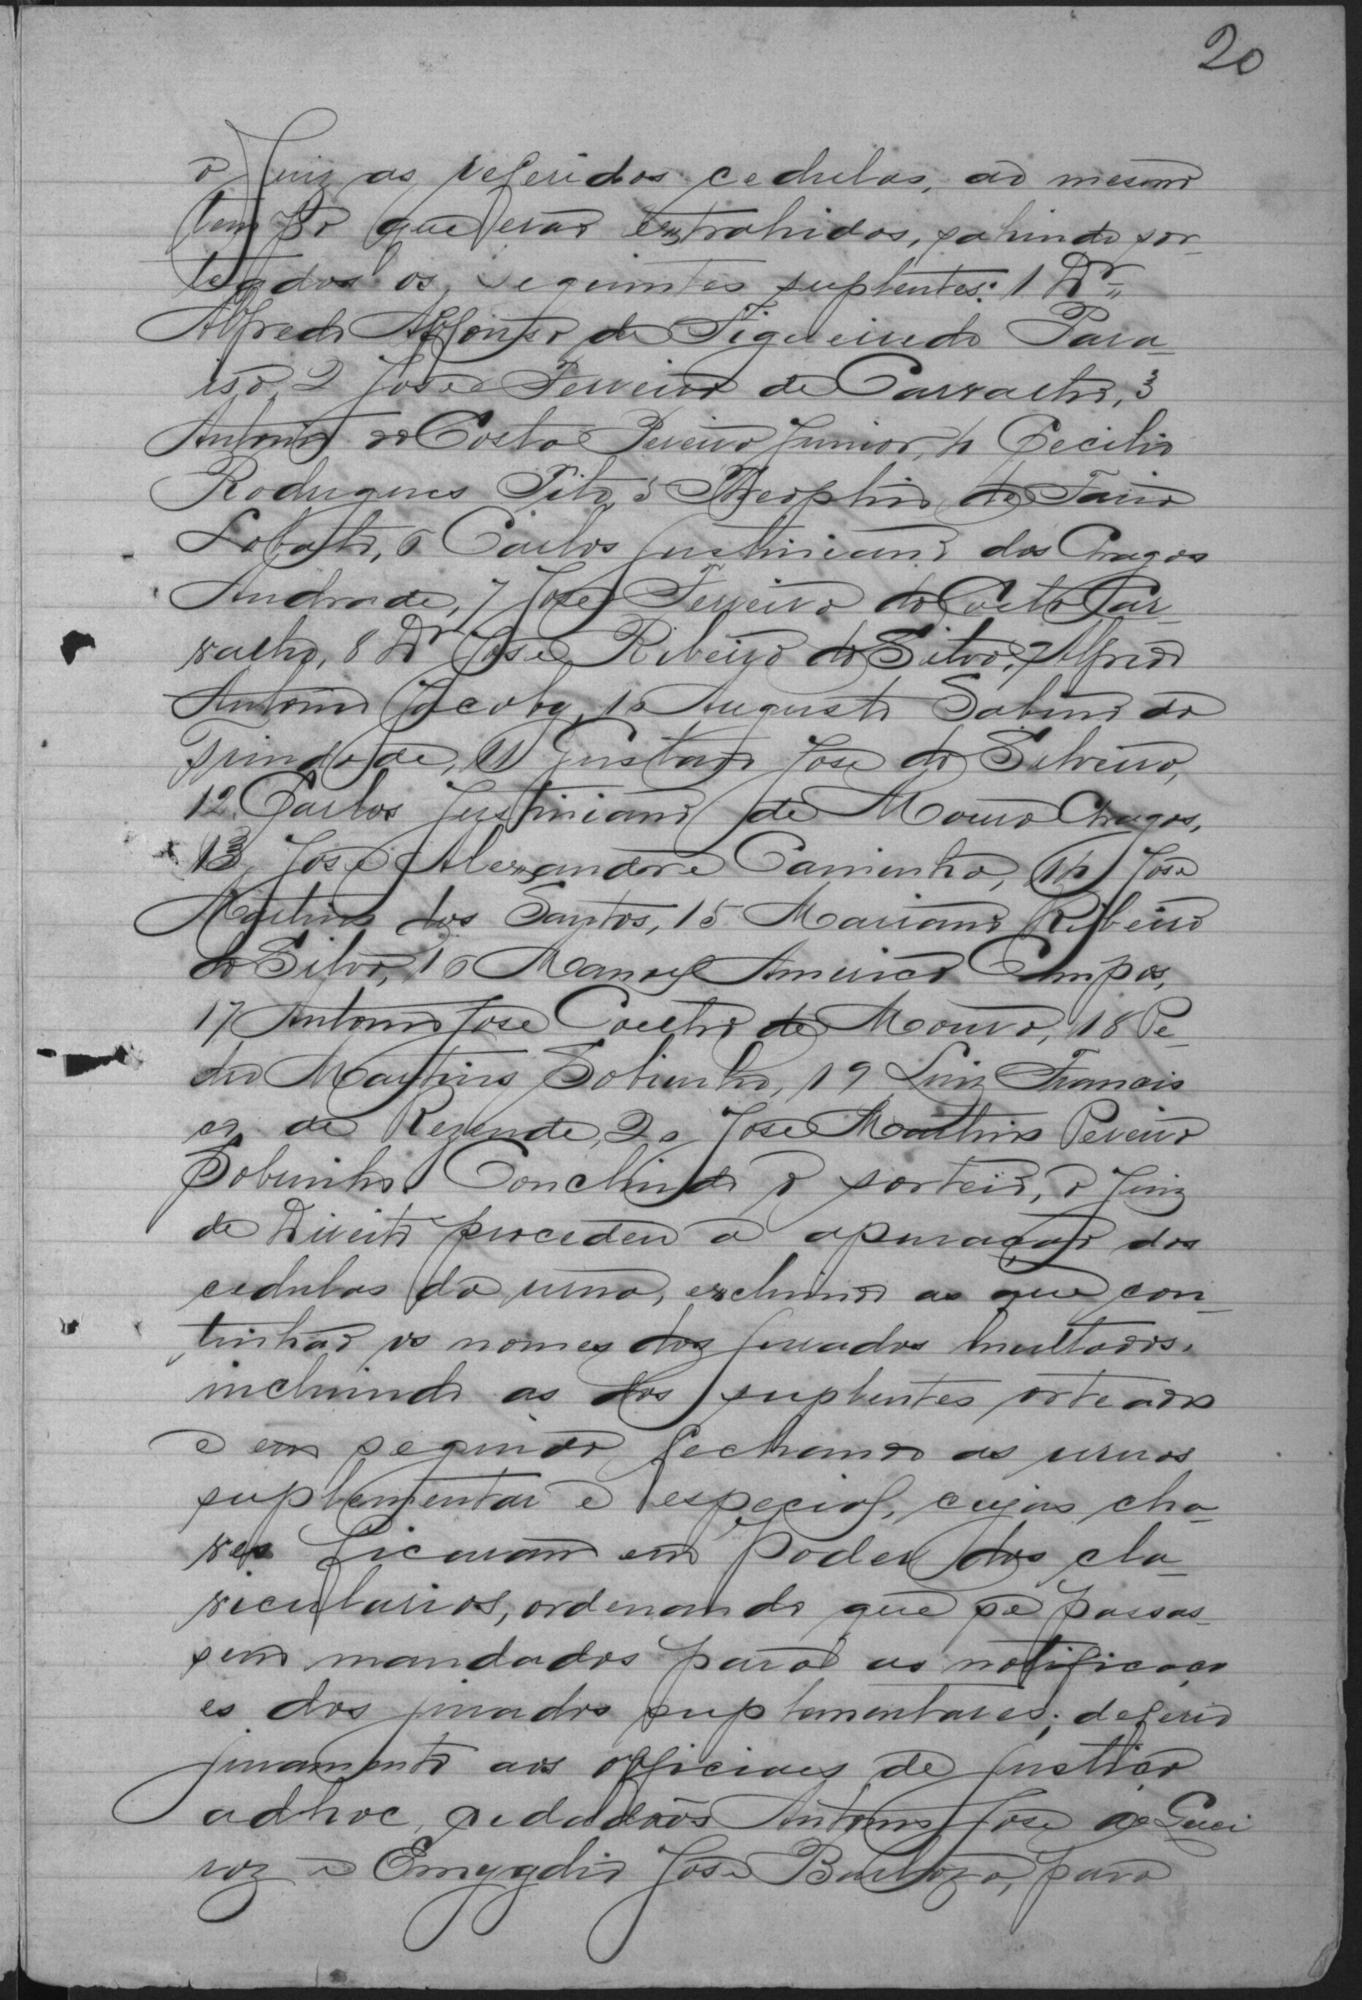 20
o Juiz as referidas cedulas, ao mesmo
tempo que erão extrahidas, sahindo sor-
teados os seguintes suplentes: 1 Dr
Alfredo Affonso de Figueiredo Para-
iso, 2 José Ferreira de Carvalho, 3
Antonio da Costa Pereira Junior, 4 Cecilio
Rodrigues Tito, 5 Theophilo de Faria
Lobato, 6 Carlos Justiniano das Chagas
Andrade, 7 José Ferreira da Costa Car-
valho, 8 Dr José Ribeiro da Silva, 9 Alfredo
Antonio Jacoby, 10 Augusto Sabino da
Trindade, 11 Gustavo José da Silveira,
12 Carlos Justiniano de Moura Chagas,
13 José Alexandre Caminha, 14 José
Martins dos Santos, 15 Mariano Ribeiro
da Silva, 16 Manoel Americo Campos,
17 Antonio José Coelho de Moura, 18 Pe-
dro Martins Sobrinho, 19 Luiz Francis
co de Rezende, 20 José Martins Pereira
Sobrinho. Concluido o sorteio, o Juiz
de Direito procedeu a apuração das
cedulas da urna, excluindo as que con-
tinhão os nomes dos jurados multados,
incluindo as dos suplentes sorteados
e em seguida fechando as urnas
suplementar e especial, cujas cha-
ves ficaram em poder dos cla-
viculários, ordenando que se passas-
sem mandados para as notificaçõ
es dos jurados suplementares; deferio
juramento aos officiaes de justiça
adhoc, cidadãos Antonio José de Quei
roz e Emygdio José Barboza, para